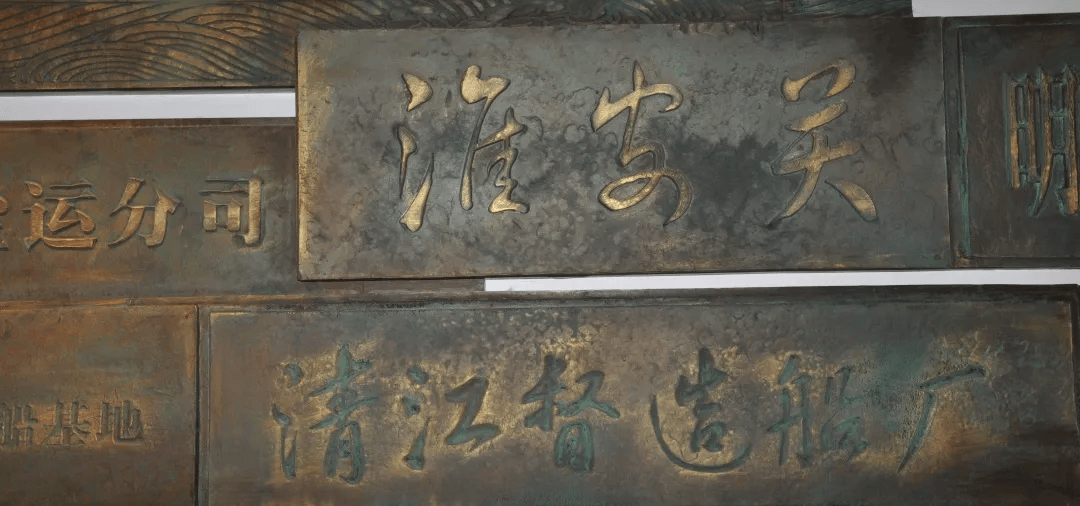 淮安关
明
运分司
清江督造船厂
船基地